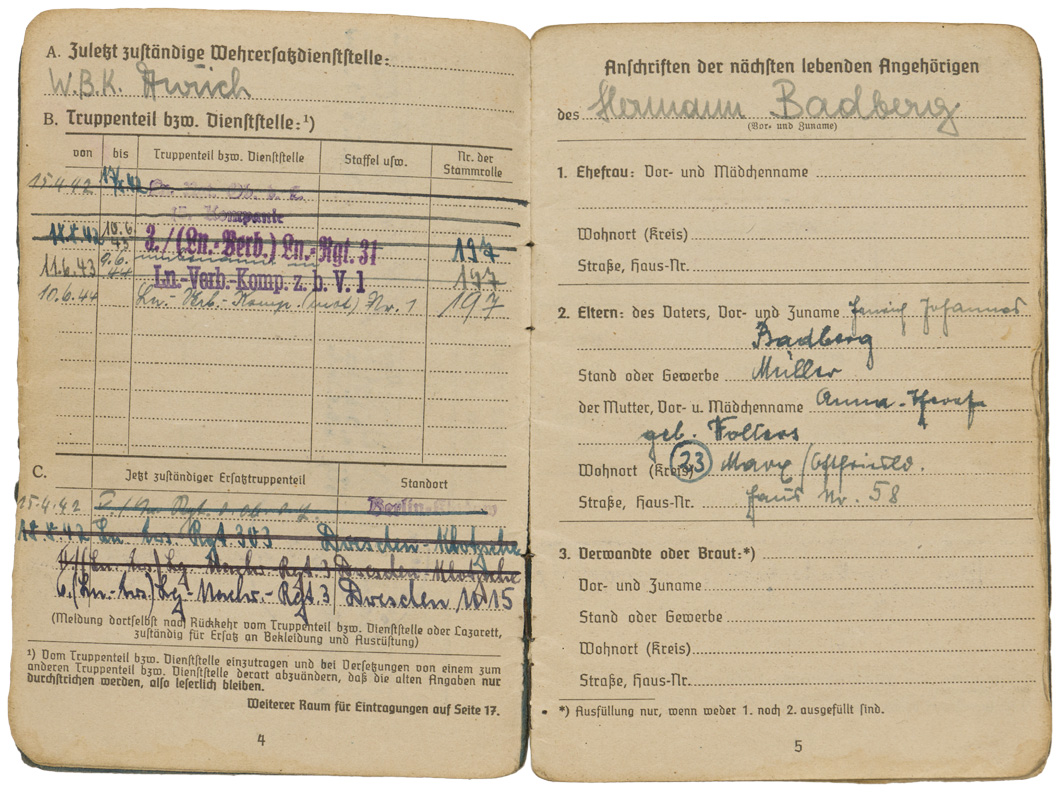 A. Zuletzt zuständige Wehrersatzdienststelle:
W.B.K. Aurich
B. Truppenteil bzw. Dienststelle:¹)
von bis Truppenteil bzw. Dienststelle Staffel usw. Nr. der Stammrolle
15.4.42
Kompanie
3./(Ln.-Verb.) Ln.-Rgt. 31 197
10.6.43
11.6.43 9.6.44 Ln.-Verb.-Komp. z. b. V. 1 197
10.6.44 Ln.-Verb.-Komp. (mot) Nr. 1 197
C. Jetzt zuständiger Ersatztruppenteil Standort
15.4.42 Berlin-
Ln. Rgt 303 Dresden-Klotzsche
Rgt. 3 Dresden-Klotzsche
6.(Ln.- Lg.-Nachr.-Rgt. 3 Dresden N 15
(Meldung dortselbst nach Rückkehr vom Truppenteil bzw. Dienststelle oder Lazarett,
zuständig für Ersatz an Bekleidung und Ausrüstung)
¹) Vom Truppenteil bzw. Dienststelle einzutragen und bei Versetzungen von einem zum
anderen Truppenteil bzw. Dienststelle derart abzuändern, daß die alten Angaben nur
durchstrichen werden, also leserlich bleiben.
Weiterer Raum für Eintragungen auf Seite 17.
4
Anschriften der nächsten lebenden Angehörigen
des Hermann Badberg
(Vor- und Zuname)
1. Ehefrau: Vor- und Mädchenname
Wohnort (Kreis)
Straße, Haus-Nr.
2. Eltern: des Vaters, Vor- und Zuname Heinrich Johannes
Badberg
Stand oder Gewerbe Müller
der Mutter, Vor- u. Mädchenname Anna-
geb. Folkers
Wohnort (Kreis) (23) Marx /Ostfriesld.
Straße, Haus-Nr. Haus Nr. 58
3. Verwandte oder Braut:*)
Vor- und Zuname
Stand oder Gewerbe
Wohnort (Kreis)
Straße, Haus-Nr.
*) Ausfüllung nur, wenn weder 1. noch 2. ausgefüllt sind.
5